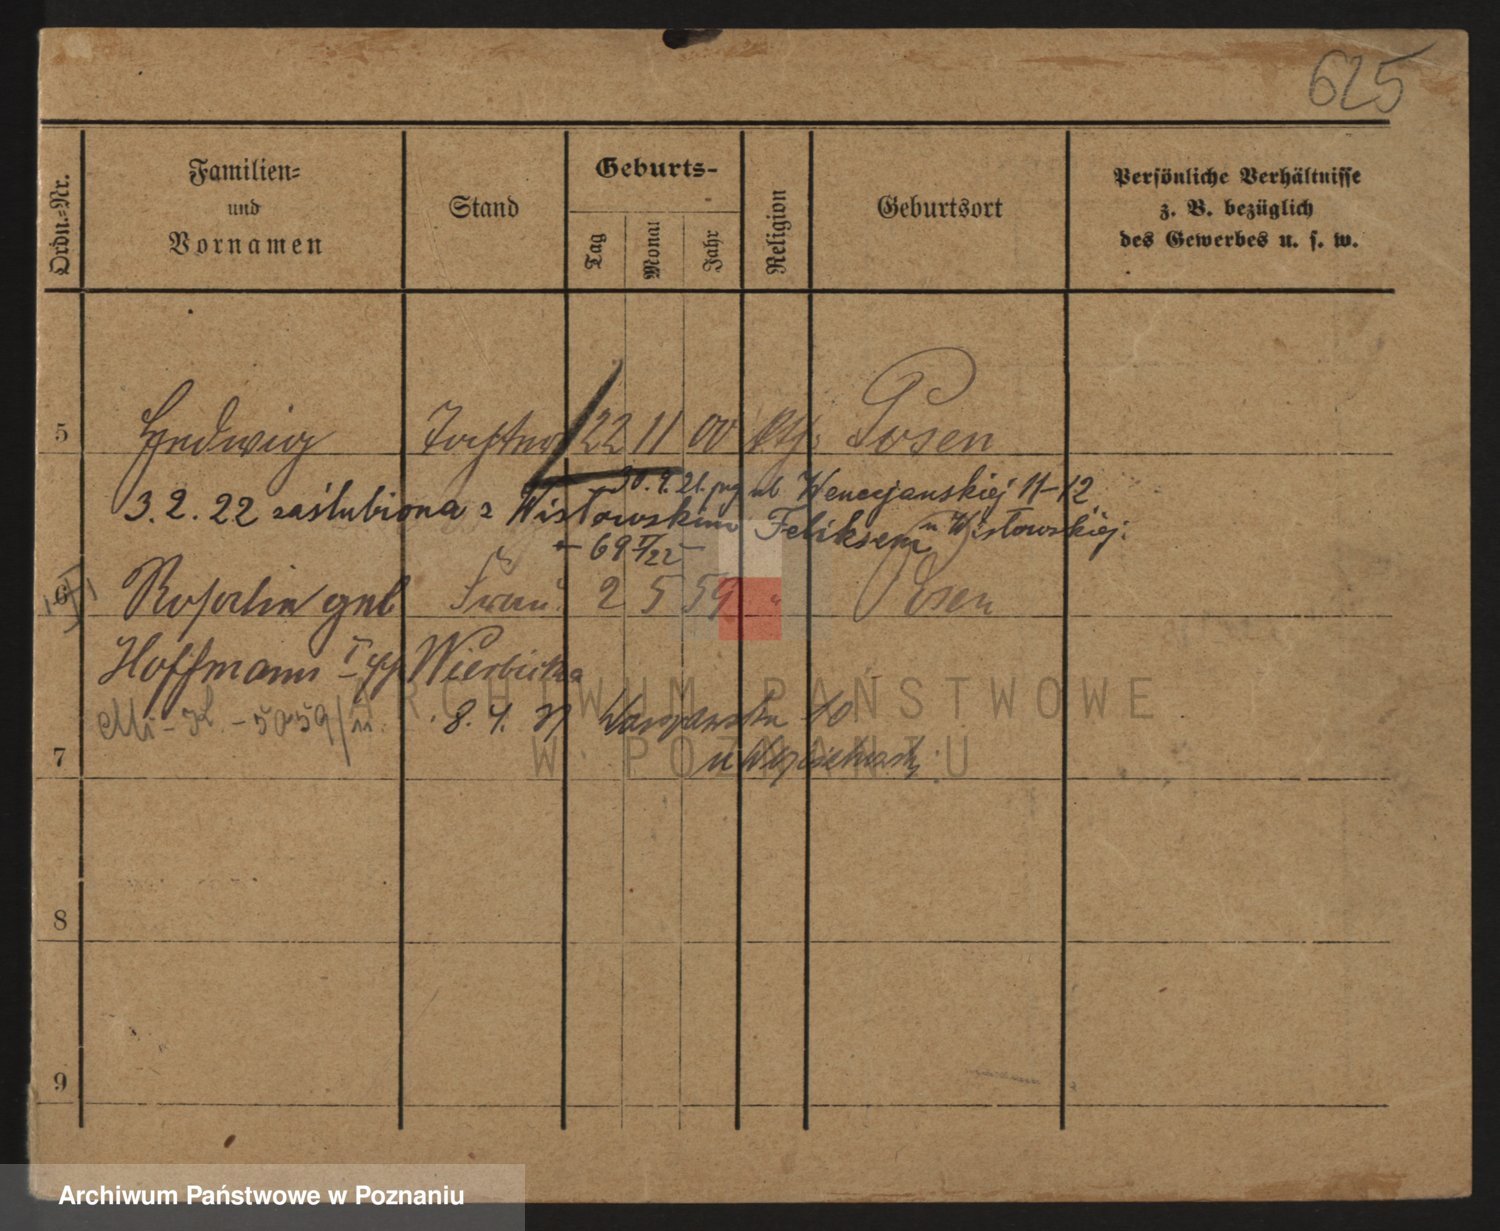 625
Ordn.-Nr.
Familien-
und
Vornamen
Stand
Geburts-
Tag
Monat
Jahr
Religion
Geburtsort
Persönliche Verhältnisse
z. B. bezüglich
des Gewerbes u. s. w.
5 Hedwig Tochter 22 11 00 kth. Posen
30.9.21. ul. Wenecjanskiej 11-12
3.2.22 zaślubiona z Wisłowskim Feliksem u Wisłowskiej.
+ 69 V/22
6 Rosalie geb Frau 2 5 59 " Posen
Hoffmann I Wierbicka
- 5059/
8.4. Warszawska 10
7 u
8
9
ARCHIWUM PAŃSTWOWE
W POZNANIU
Archiwum Państwowe w Poznaniu